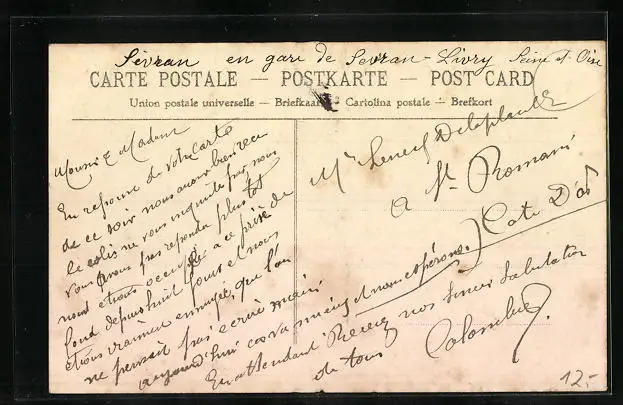 Sévran en gare de Sevran-Livry Seine et Oise
CARTE POSTALE — POSTKARTE — POST CARD
Union postale universelle — Briefkaart — Cartolina postale — Brefkort
Monsieur et Madame
En reponse de votre carte
de ce soir nous avons bien recu
le colis ne vous inquiété pas, nous
vous avons pas repondu plus tôt
nous etions occupé a ce prise de
fond depuis huit jours et nous
etions vraiment ennuyés, que l'on
ne pensait pas ecrire mais
aujourd'hui ca va mieux et nous espérons.
En attendant Recevez nos sinceres salutation
de tous
Colombier
Mr
Delaplante
a St Romain
Cote D'or
12.-